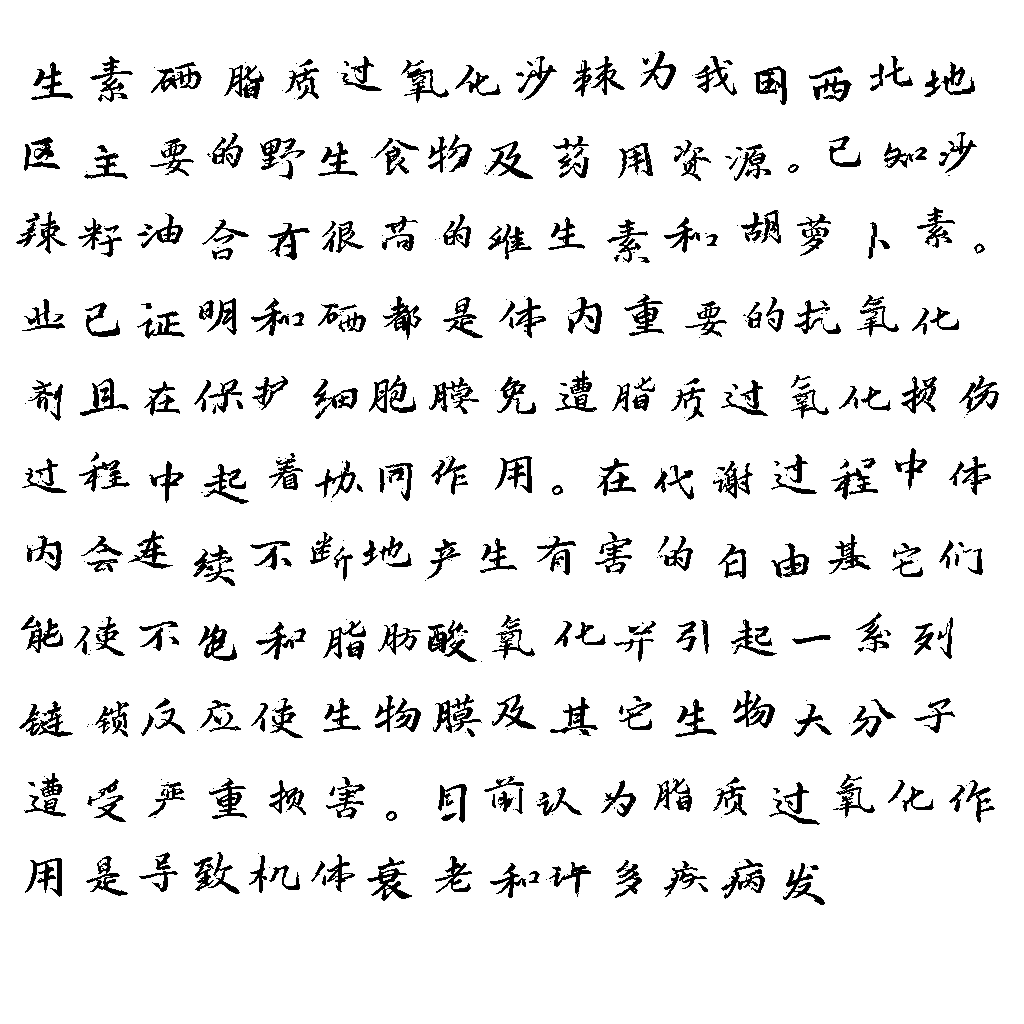 生素硒脂质过氧化沙棘为我国西北地
区主要的野生食物及药用资源。已知沙
辣籽油含有很高的维生素和胡萝卜素。
业已证明和硒都是体内重要的抗氧化
剂且在保护细胞膜免遭脂质过氧化损伤
过程中起着协同作用。在代谢过程中体
内会连续不断地产生有害的自由基它们
能使不饱和脂肪酸氧化并引起一系列
链锁反应使生物膜及其它生物大分子
遭受严重损害。目前认为脂质过氧化作
用是导致机体衰老和许多疾病发